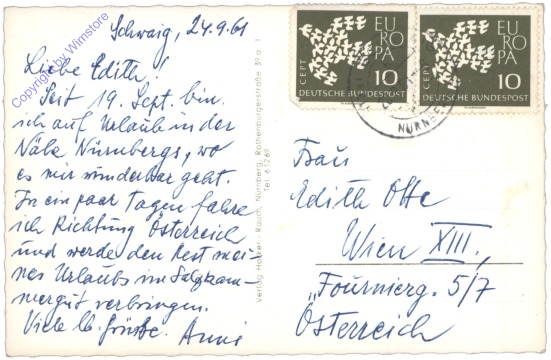 Schwaig, 24.9.61
Liebe Edith!
Seit 19. Sept. bin
ich auf Urlaub in der
Nähe Nürnbergs, wo
es mir wunderbar geht.
In ein paar Tagen fahre
ich Richtung Österreich
und werde den Rest mei-
nes Urlaubs im Salzkam-
mergut verbringen.
Viele lb. Grüsse. Anni
Copyright by Wimstore
Verlag Hofker-Rauch, Nürnberg, Rothenburgerstraße 39 a
Tel. 61269
EUROPA
CEPT
10
DEUTSCHE BUNDESPOST
EUROPA
CEPT
10
DEUTSCHE BUNDESPOST
NÜRNBE
Frau
Edith Otte
Wien XIII.,
"Fournierg. 5/7
Österreich